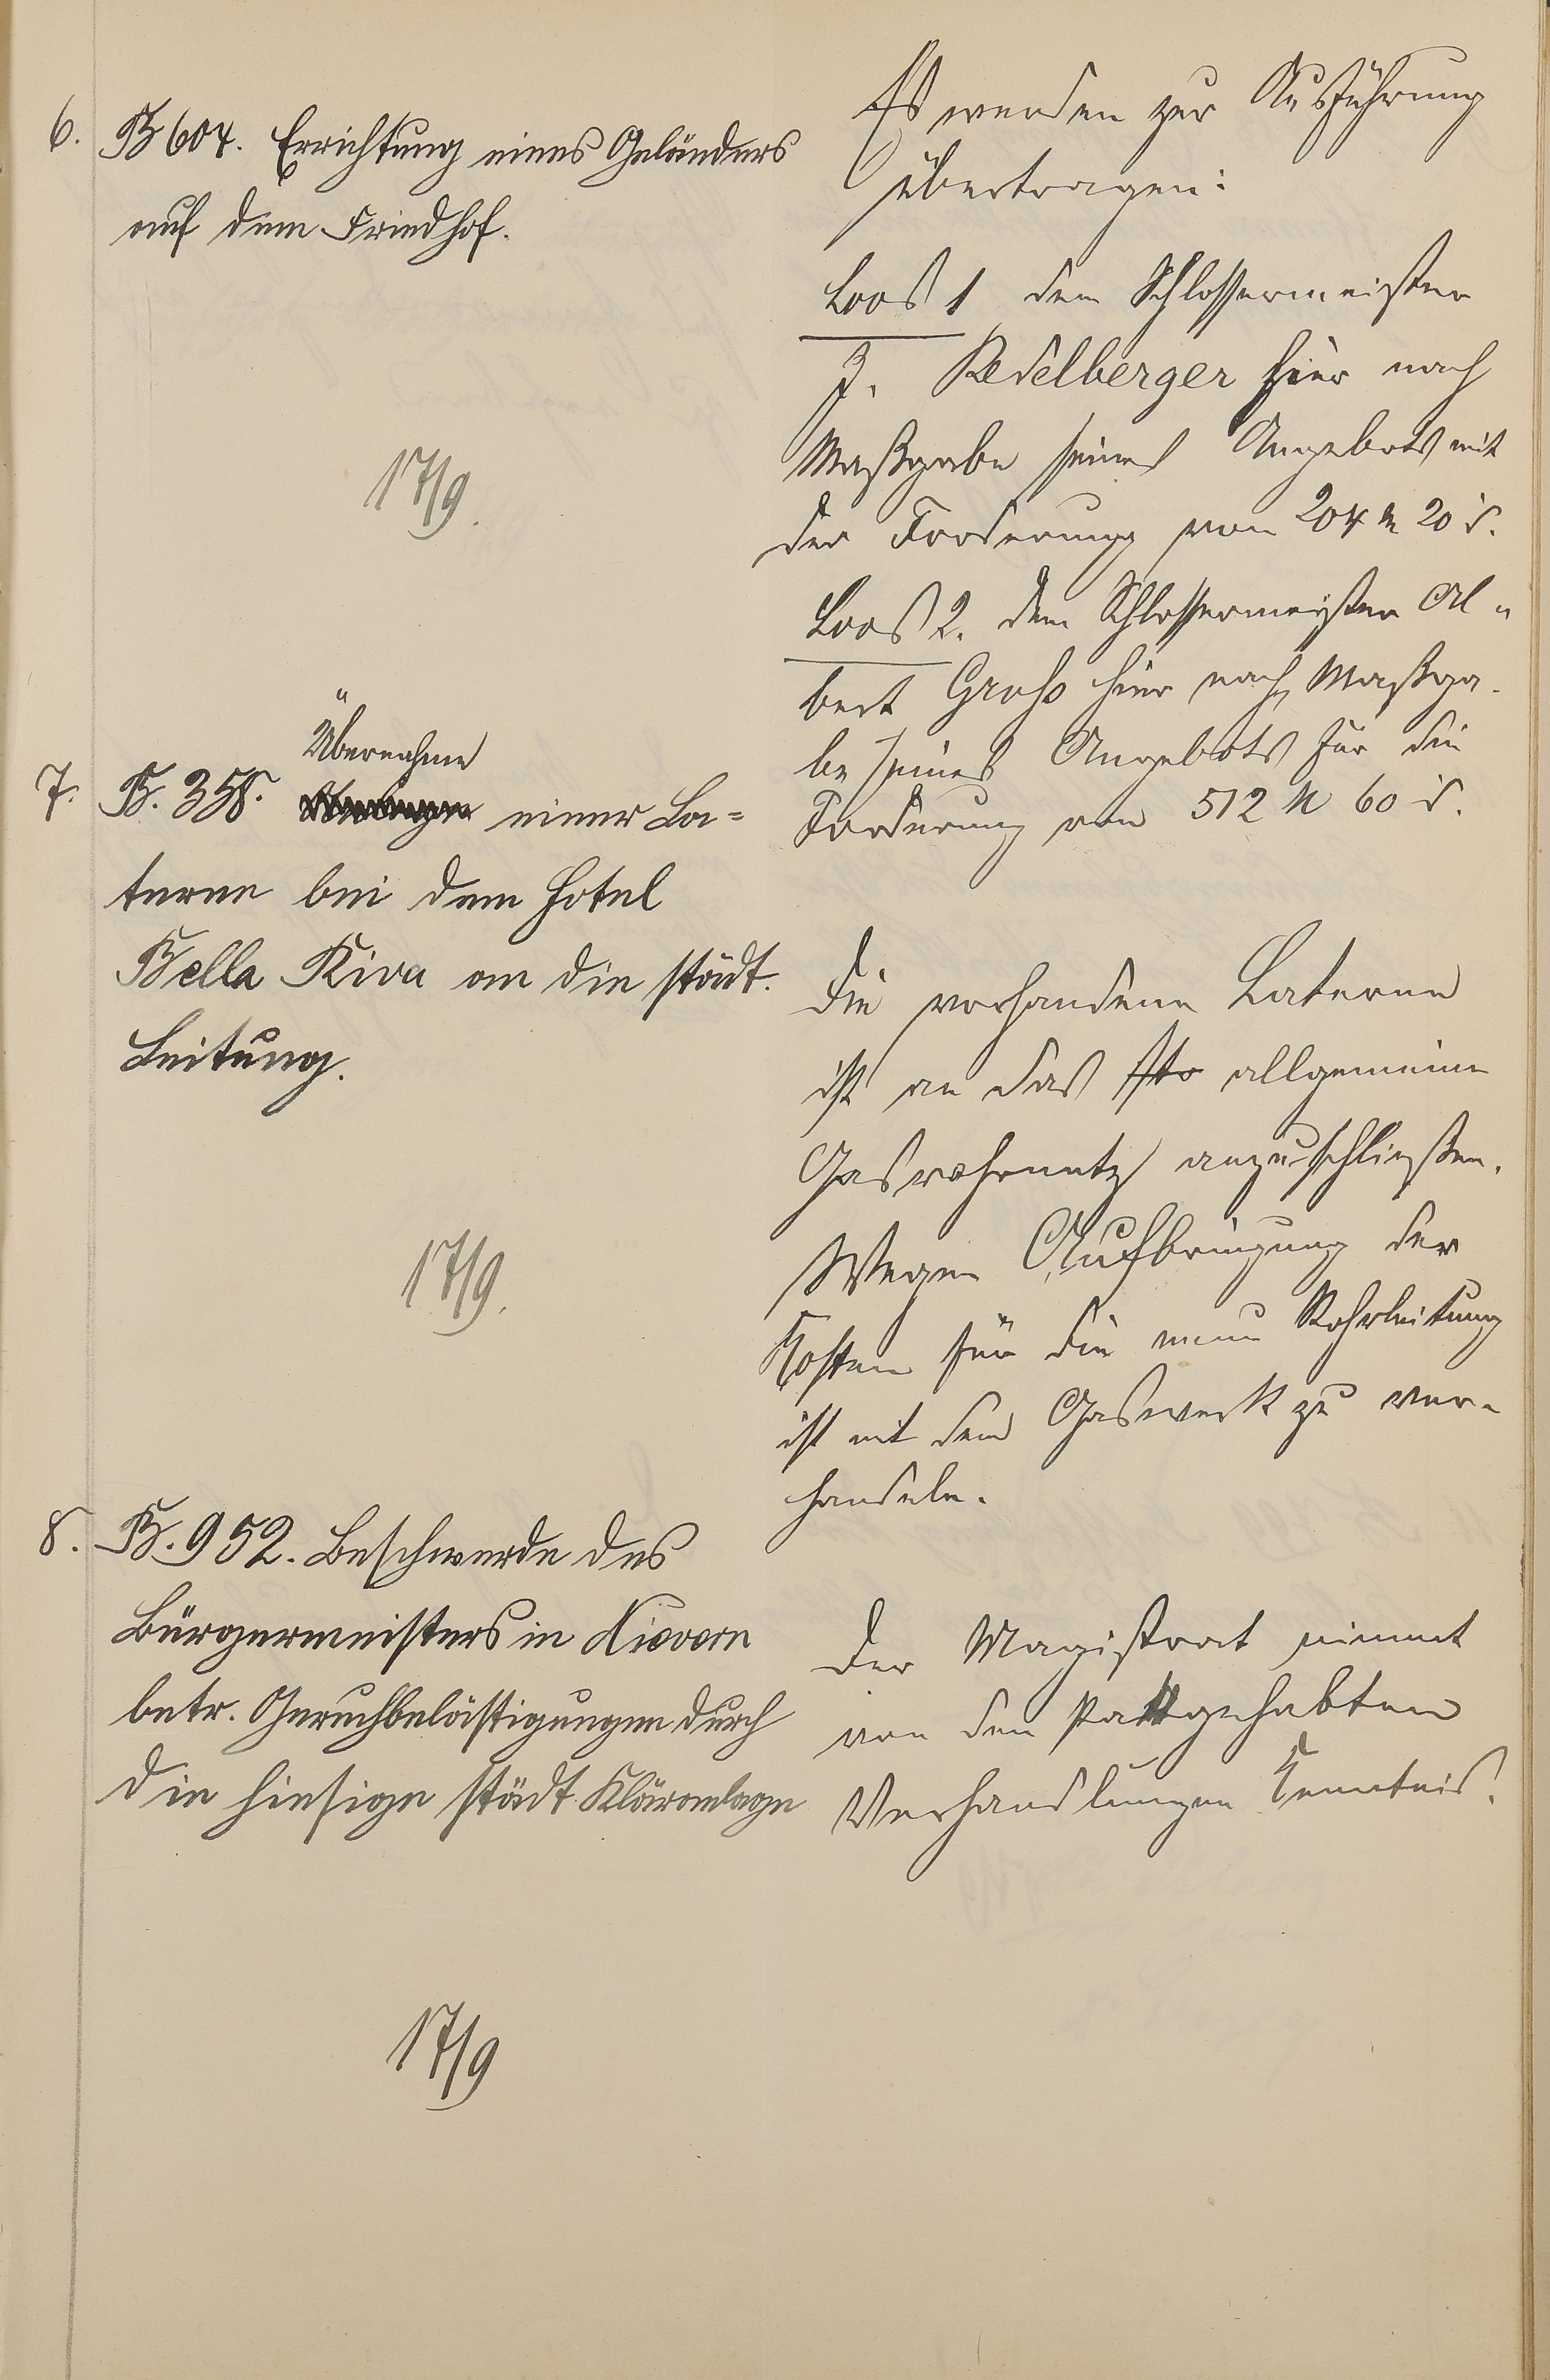 6. B 604. Errichtung eines Geländers
auf dem Friedhof.
17/9.
Es werden zur Ausführung
übertragen:
Loos 1 dem Schlossermeister
J. Redelberger hier nach
Maßgabe seines Angebots mit
der Forderung von 204 M 20 d.
Loos 2. dem Schlossermeister Al-
bert Groß hier nach Maßga-
be seines Angebots für die
Forderung von 512 M 60 d.
7. B. 358. Übernahme
einer La=
terne bei dem Hotel
Bella Riva an die städt.
Leitung.
17/9.
Die vorhandene Laterne
ist an das allgemeine
Gasrohrnetz anzuschließen.
Wegen Aufbringung der
Kosten für die neue Rohrleitung
ist mit dem Gaswerk zu ver-
handeln.
8. B. 952. Beschwerde des
Bürgermeisters in Nievern
betr. Geruchbelästigungen durch
die hiesige städt. Kläranlage
17/9
Der Magistrat nimmt
von den stattgehabten
Verhandlungen Kenntnis.